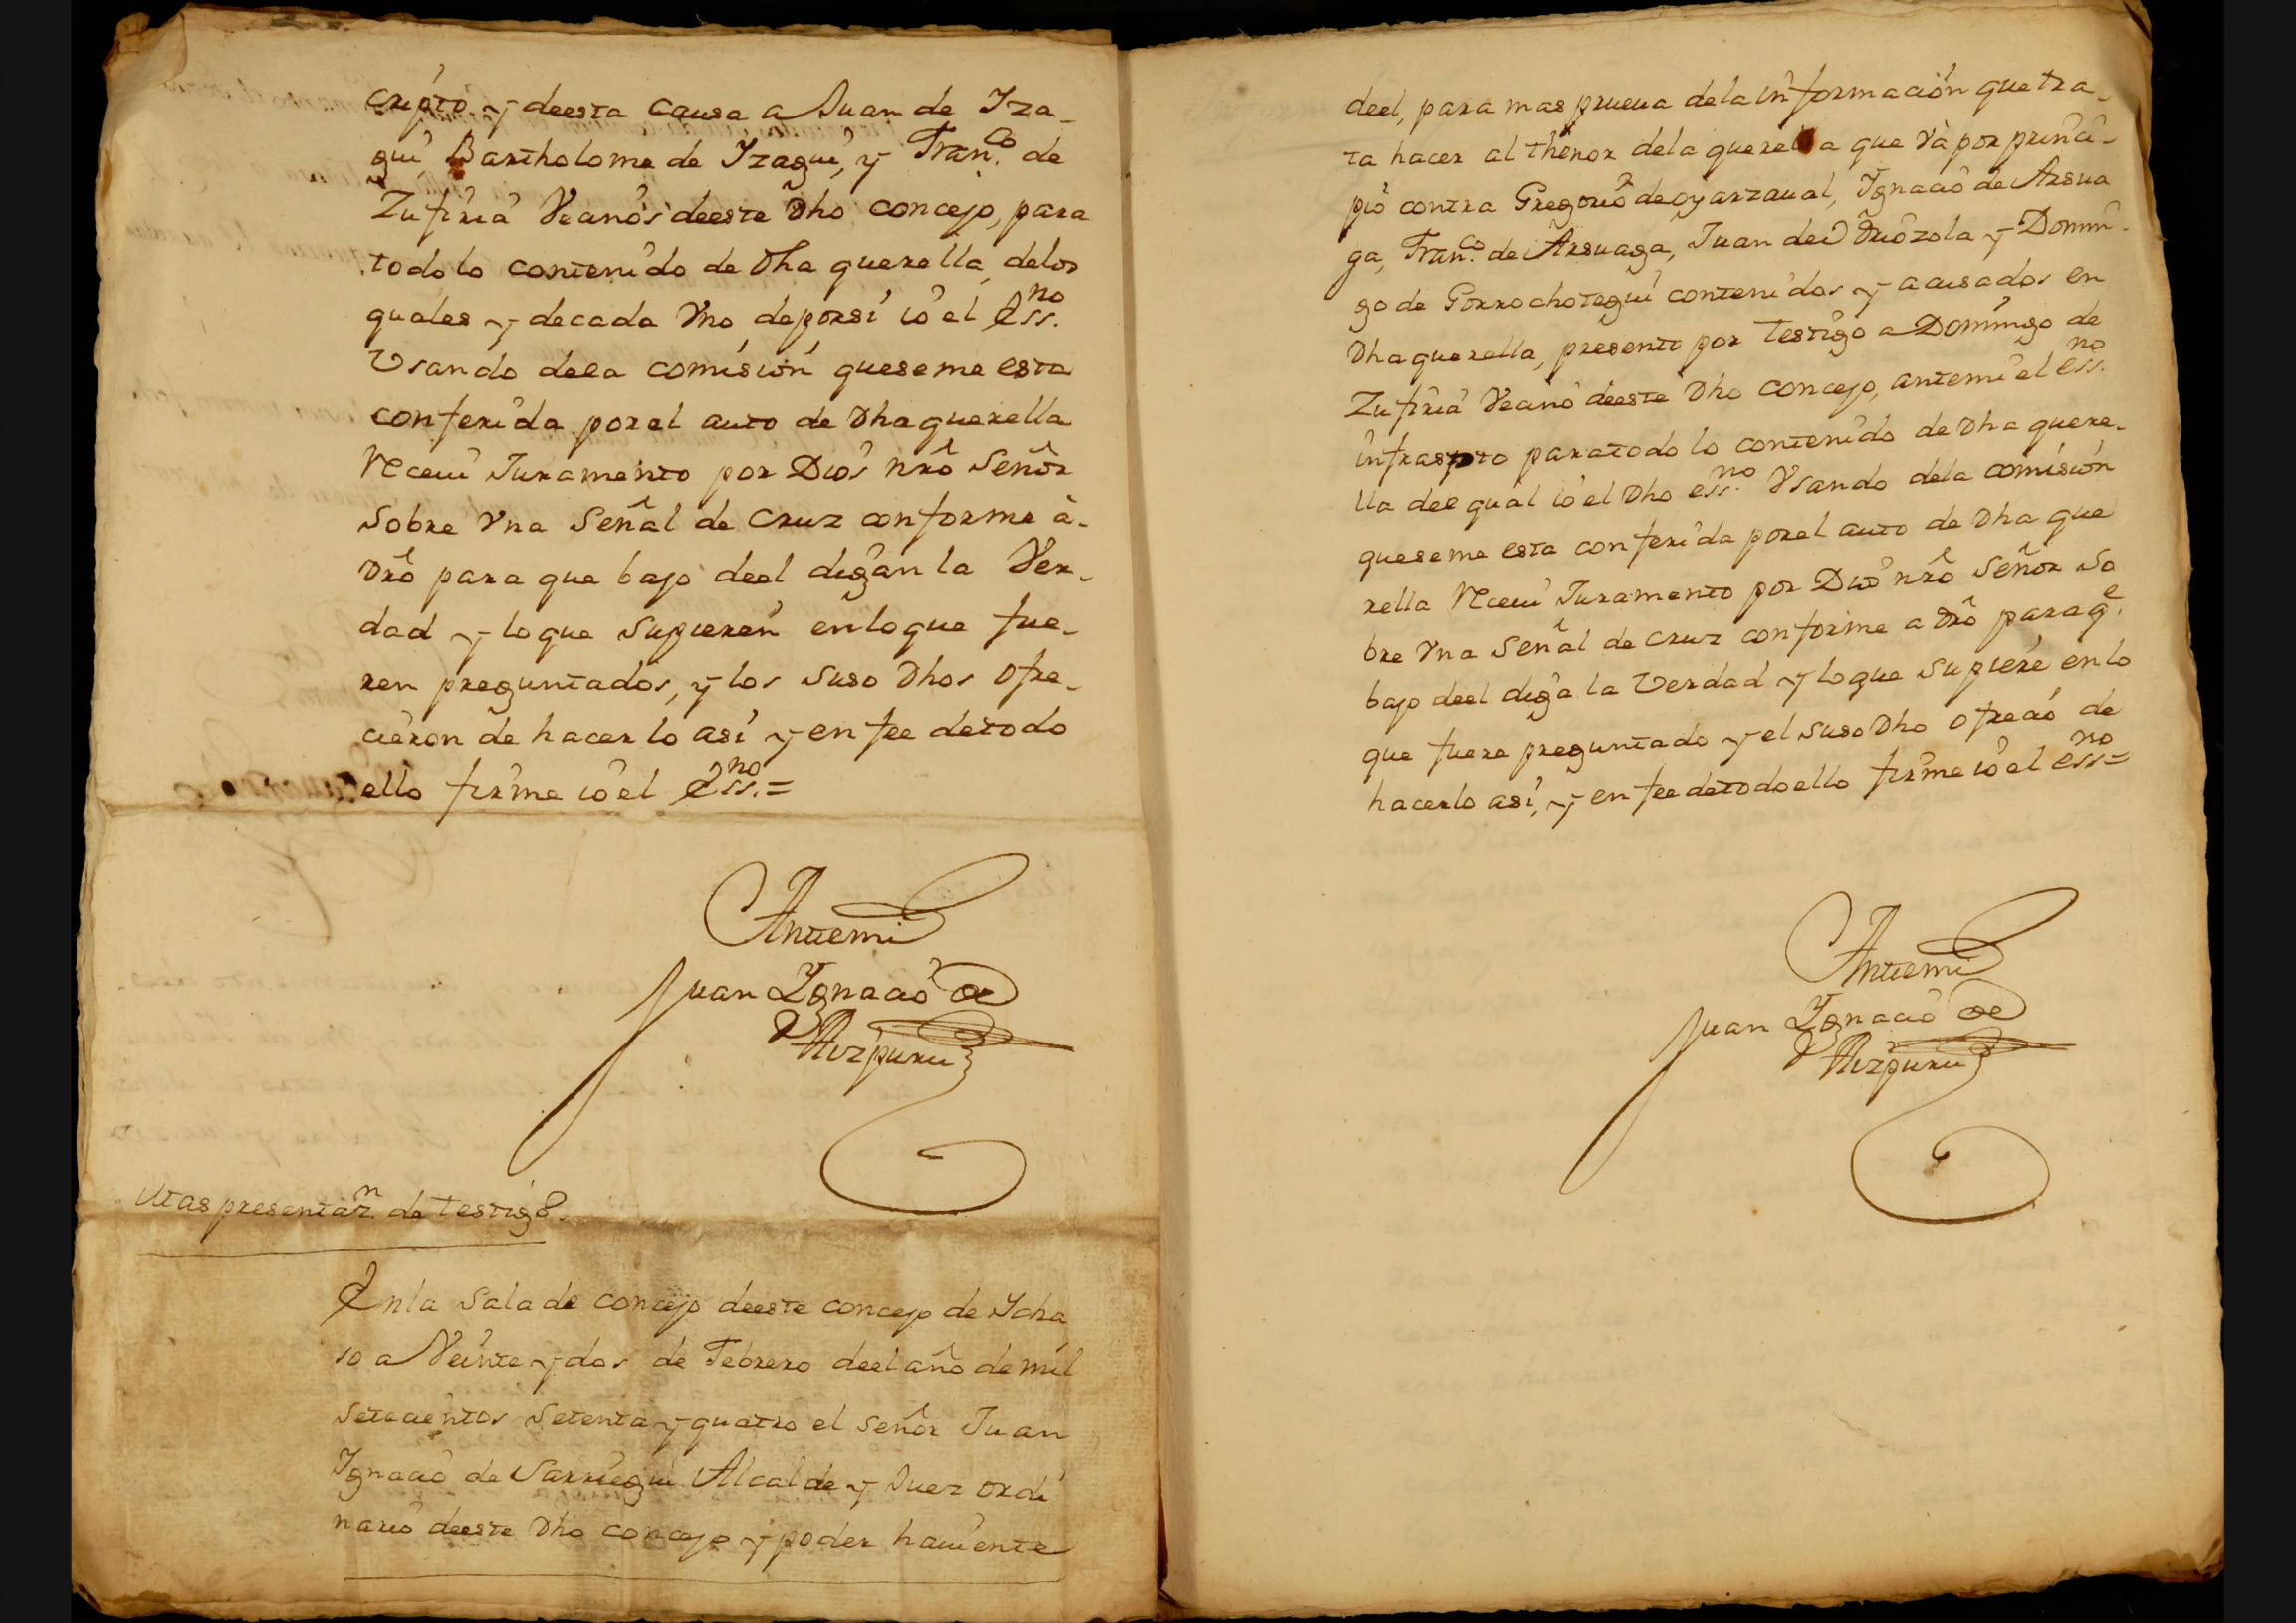 cripto y deesta causa a Juan de Yza-
gui, Bartholome de Yzagui, y Fran.co de
Zufiria Vecinos deeste Dho concejo, para
todo lo contenido de Dha querella, delos
quales y decada Vno deporsi io el Ess.no
Vsando deea comision queseme esta
conferida porel auto de Dha querella
Receui Juramento por Dios nrô Señor
Sobre Vna Señal de Cruz conforme à-
Drô para que bajo deel digan la Ver-
dad y lo que Supieren enloque fue-
ren preguntados, y los suso Dhos Ofre-
cieron de hacerlo asi y en fee detodo
ello firme io el Ess.no=
Antemi
Juan Ygnacio de
Aizpuru
Mas presentaz.n de testigo.
Enla Sala de concejo deeste concejo de Ycha
so a Veinte y dos de Febrero deel año de mil
setecientos setenta y quatro el señor Juan
Ygnacio de Sarriegui Alcalde y Juez ordi
nario deeste Dho concejo y poder hauiente
deel, para mas prueua dela informacion quetra-
ta hacer al thenor dela querella que và por princi-
pio contra Gregorio de oyarzaual, Ygnacio de Arsua
ga, Fran.co de Arsuaga, Juan de Oriozola y Domin-
go de Gorrochotegui contenidos y acusados en
Dha querella, presento por testigo a Domingo de
Zufiria Vecino deeste Dho concejo, antemi el ess.no
infraspto paratodo lo contenido de Dha quere-
lla del qual io el Dho ess.no Vsando dela comision
queseme esta conferida porel auto de Dha que
rella Receui Juramento por Dios nrô Señor So
bre Vna Señal de Cruz conforme a Drô paraq.e
bajo deel diga la Verdad y loque Supiere enlo
que fuere preguntado y el suso Dho ofrecio de
hacerlo asi, y en fee detodo ello firme io el ess.no=
Antemi
Juan Ygnacio de
Aizpuru